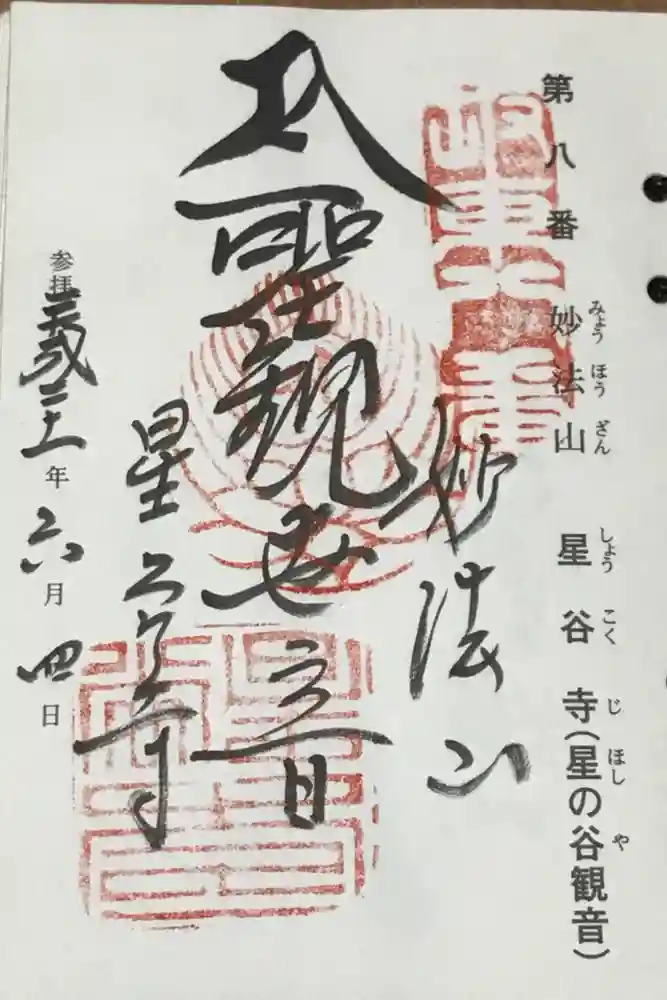 みょう ほう ざん しょう こく じ ほし や
第八番 妙法山 星谷寺(星の谷観音)
妙法山
聖観世音
星谷寺
参拝平成二十一年六月四日